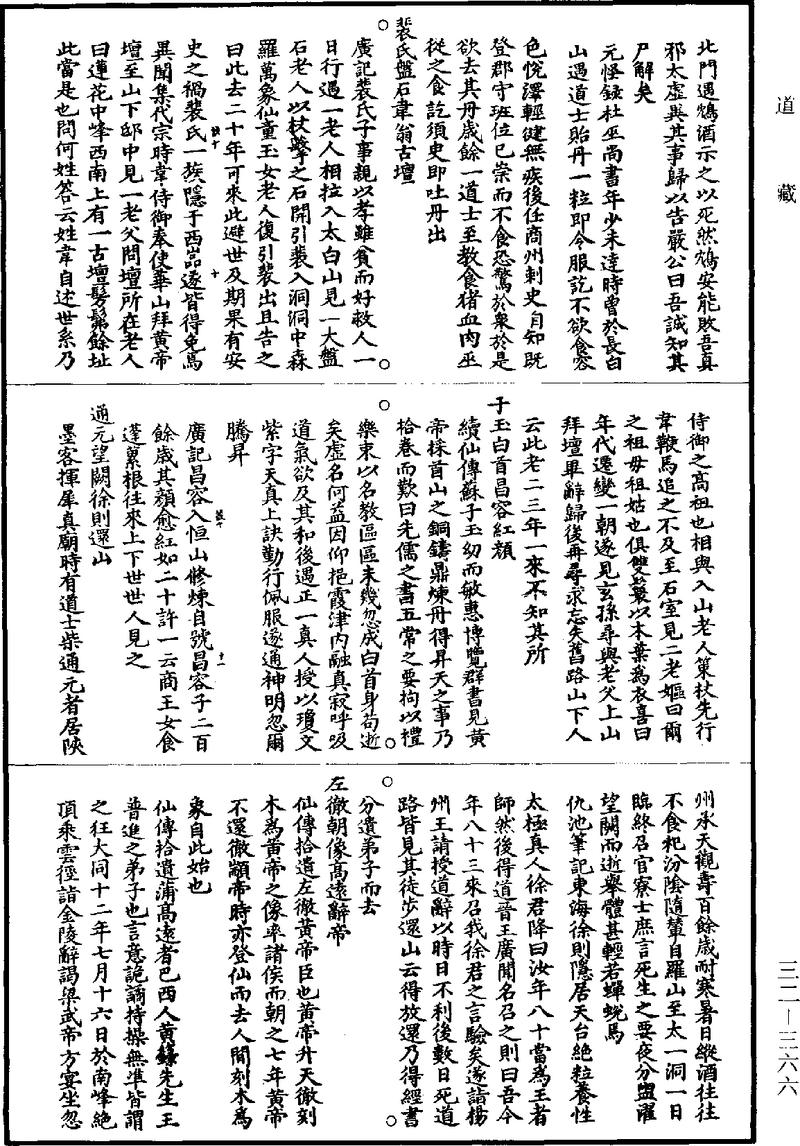 道藏
北門遇鴆酒示之以死然鴆安能敗吾真
邪太虛異其事歸以告嚴公曰吾誠知其
尸解矣
元怪錄杜巫尚書年少未達時曾於長白
山遇道士貽丹一粒即令服訖不欲食容
色悅澤輕健無疾後任商州刺史自知既
登郡守班位已崇而不食恐驚於衆於是
欲去其丹歲餘一道士至教食猪血肉巫
從之食訖須臾即吐丹出
裴氏盤石韋翁古壇
廣記裴氏子事親以孝雖貧而好救人一
日行遇一老人相拉入太白山見一大盤
石老人以杖擊之石開引裴入洞洞中森
羅萬象仙童玉女老人復引裴出且告之
曰此去二十年可來此避世及期果有安
史之禍裴氏一族隱于西嵓遂皆得免焉
異聞集代宗時韋侍御奉使華山拜黃帝
壇至山下邸中見一老父問壇所在老人
曰蓮花中峰西南上有一古壇髣髴餘址
此當是也問何姓答云姓韋自述世系乃
侍御之高祖也相與入山老人策杖先行
韋鞭馬追之不及至石室見二老嫗曰爾
之祖母祖姑也俱雙鬟以木葉為衣喜曰
年代遷變一朝遂見玄孫尋與老父上山
拜壇畢辭歸後再尋求忘失舊路山下人
云此老二三年一來不知其所
子玉白首昌容紅顏
續仙傳蘇子玉幼而敏惠博覽群書見黃
帝採首山之銅鑄鼎煉丹得昇天之事乃
拾卷而歎曰先儒之書五常之要拘以禮
樂束以名教區區未幾忽成白首身苟逝
矣虛名何益因仰挹霞津內融真寂呼吸
道氣欲及其和後遇正一真人授以瓊文
紫字天真上訣勤行佩服遂通神明忽爾
騰昇
廣記昌容入恒山修煉自號昌容子二百
餘歲其顏愈紅如二十許一云商王女食
蓬蔂根往來上下世世人見之
通元望闕徐則還山
墨客揮犀真廟時有道士柴通元者居陝
州承天觀壽百餘歲耐寒暑日縱酒往往
不食祀汾陰隨輦自羅山至太一洞一日
臨終召官寮士庶言死生之要夜分盥濯
望闕而逝舉體甚輕若蟬蛻焉
仇池筆記東海徐則隱居天台絕粒養性
太極真人徐君降曰汝年八十當為王者
師然後得道晉王廣聞名召之則曰吾今
年八十三來召我徐君之言驗矣遂請楊
州王請授道辭以時日不利後數日死道
路皆見其徒步還山云得放還乃得經書
分遺弟子而去
左徹朝像高遠辭帝
仙傳拾遺左徹黃帝臣也黃帝升天徹刻
木為黃帝之像率諸侯而朝之七年黃帝
不還徹顓帝時亦登仙而去人間刻木為
象自此始也
仙傳拾遺蒲高遠者巴西人黃籙先生王
普進之弟子也言意詭譎持操無準皆謂
之狂大同十二年七月十六日於南峰絕
頂乘雲徑詣金陵辭謁梁武帝方宴坐忽
三二—三六六